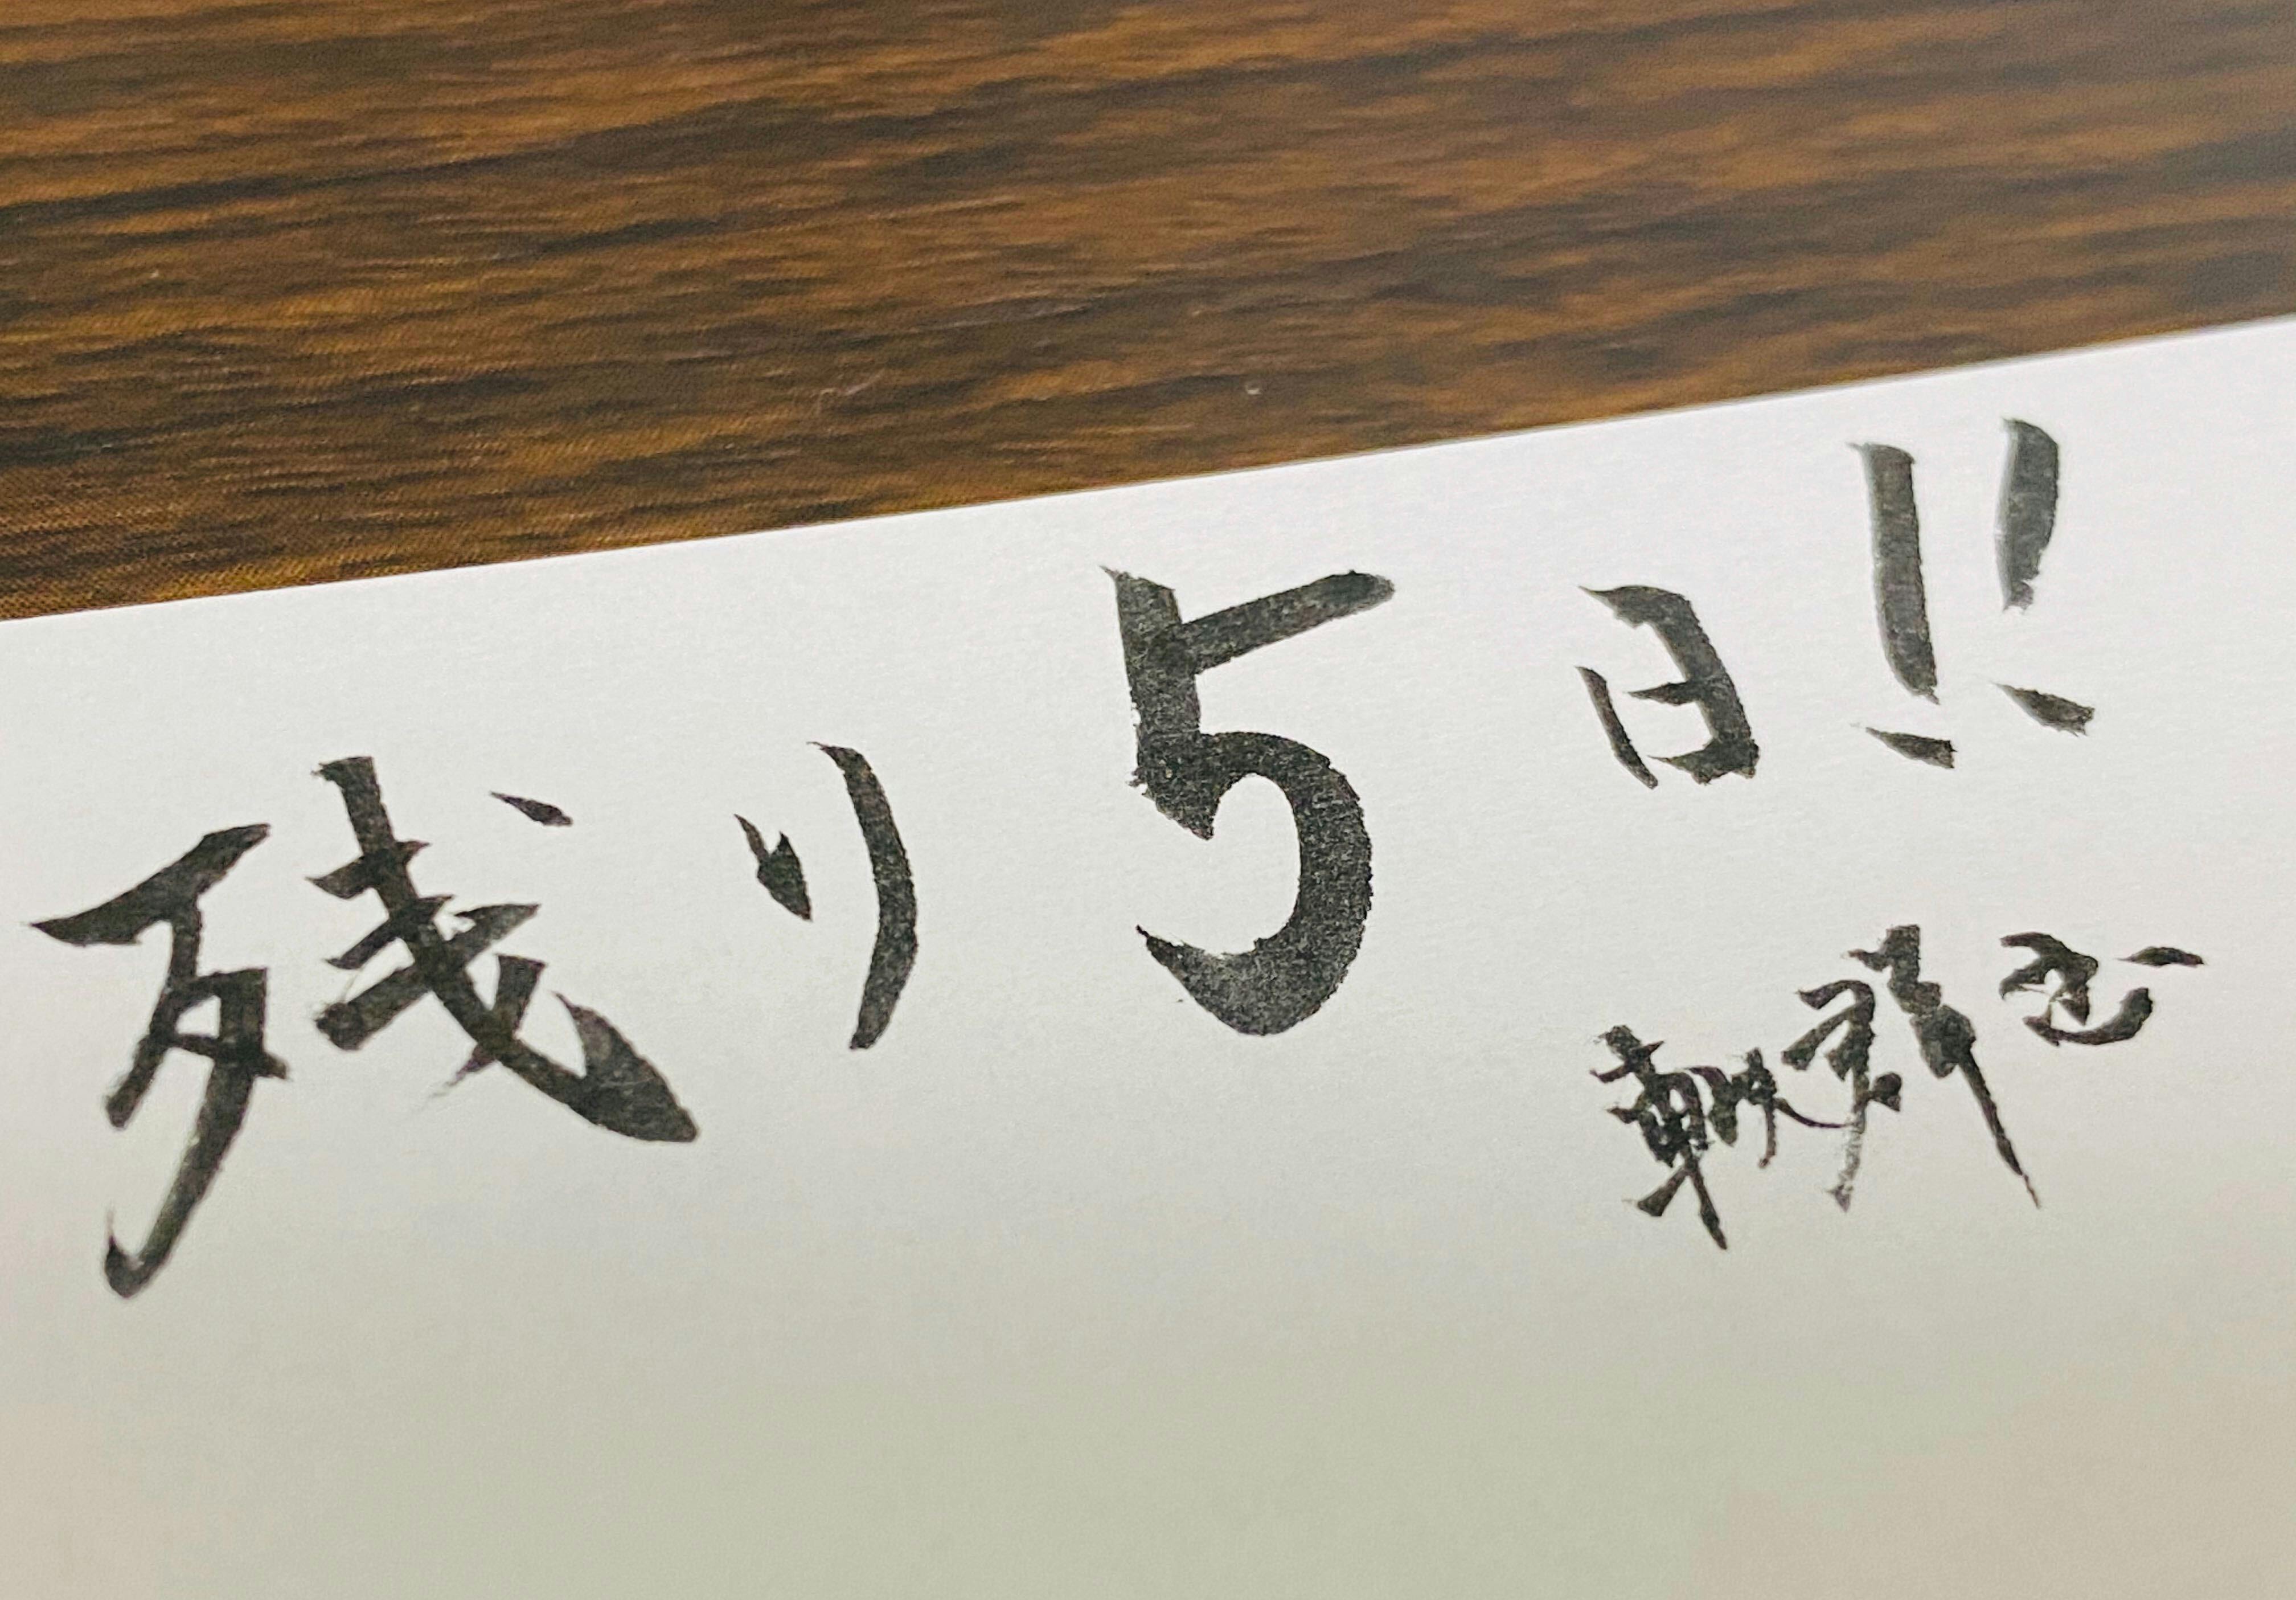 残り5日!!